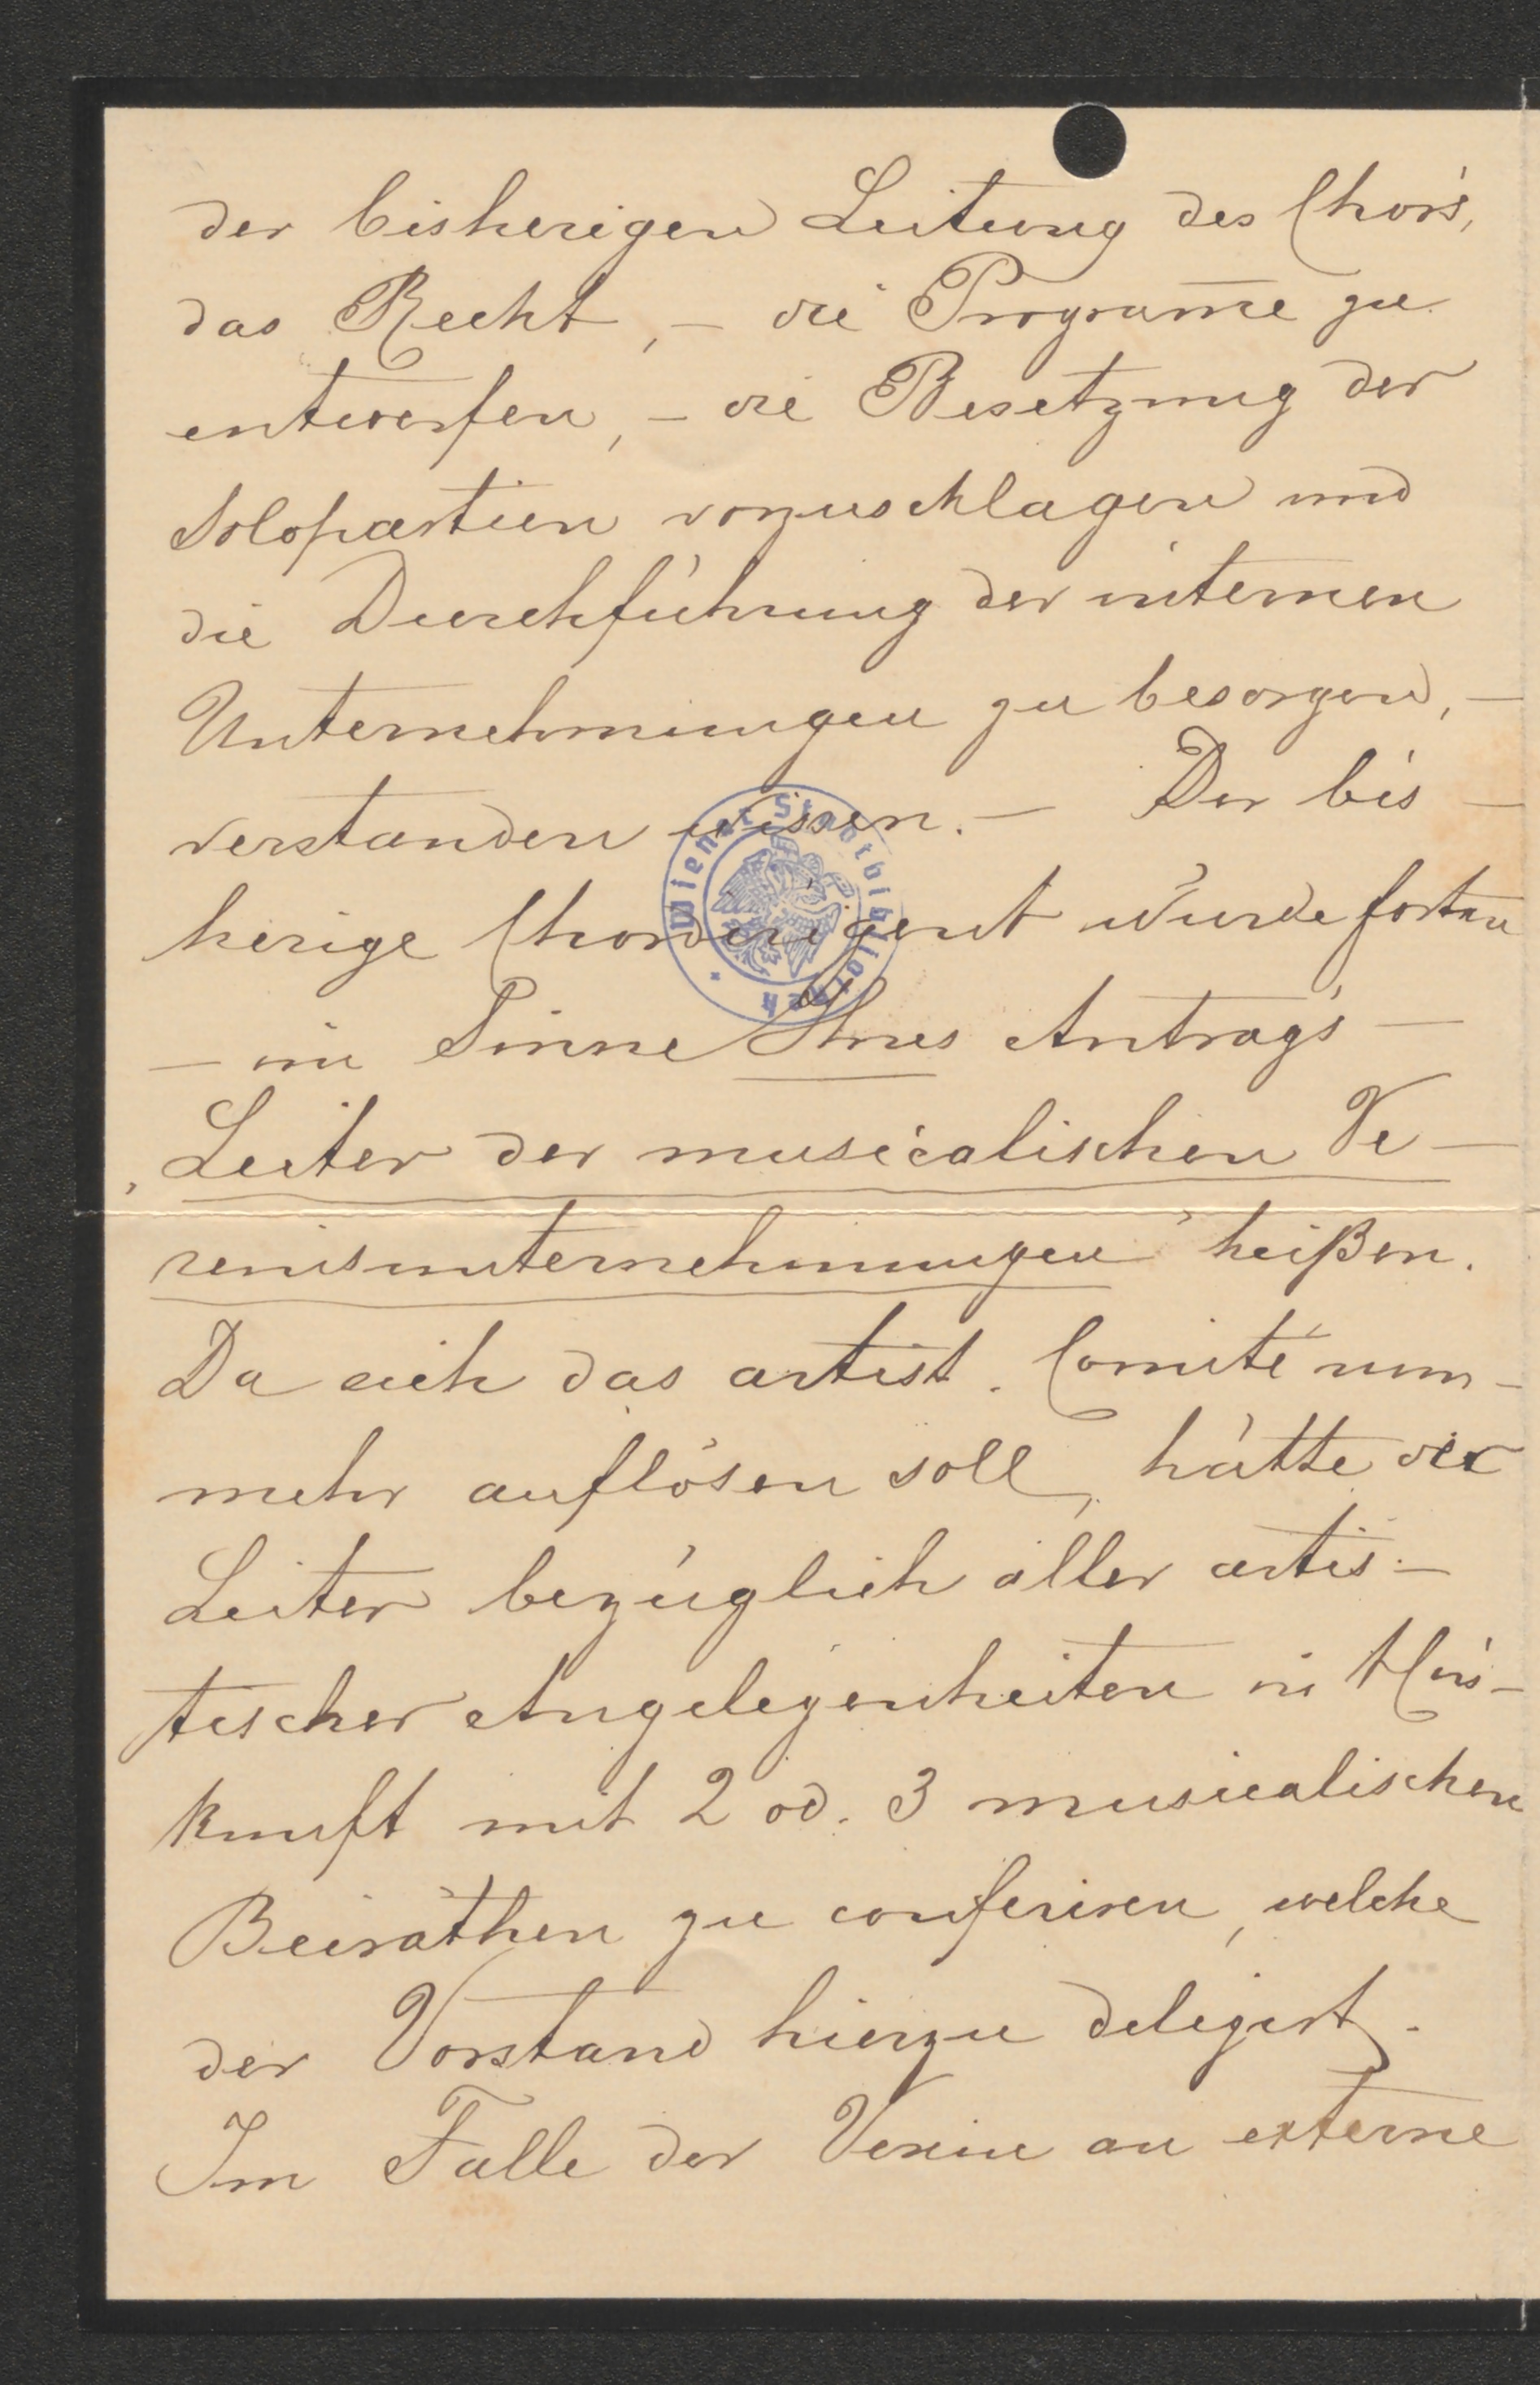 der bisherigen Leitung des Chors,
das Recht, – die Programm̅e zu
entwerfen, – die Besetzung der
Solopartien vorzuschlagen und
die Durchführung der internen
Unternehmungen zu besorgen, –
verstanden wissen. – Der bis –
herige Chordirigent würde fortan
– im Sinne Ihres Antrags –
„Leiter der musicalischen Ve –
reinsunternehmungen“ heißen.
Da sich das artist. Comité nun –
mehr auflösen soll, hätte der
Leiter bezüglich aller artis –
tischer Angelegenheiten in
kunft mit 2 od. 3 musicalischen
Beiräthen zu conferiren, welche
der Vorstand hierzu delegirt.
Im Falle der Verein an externe
Wiener Stadtbibliothek